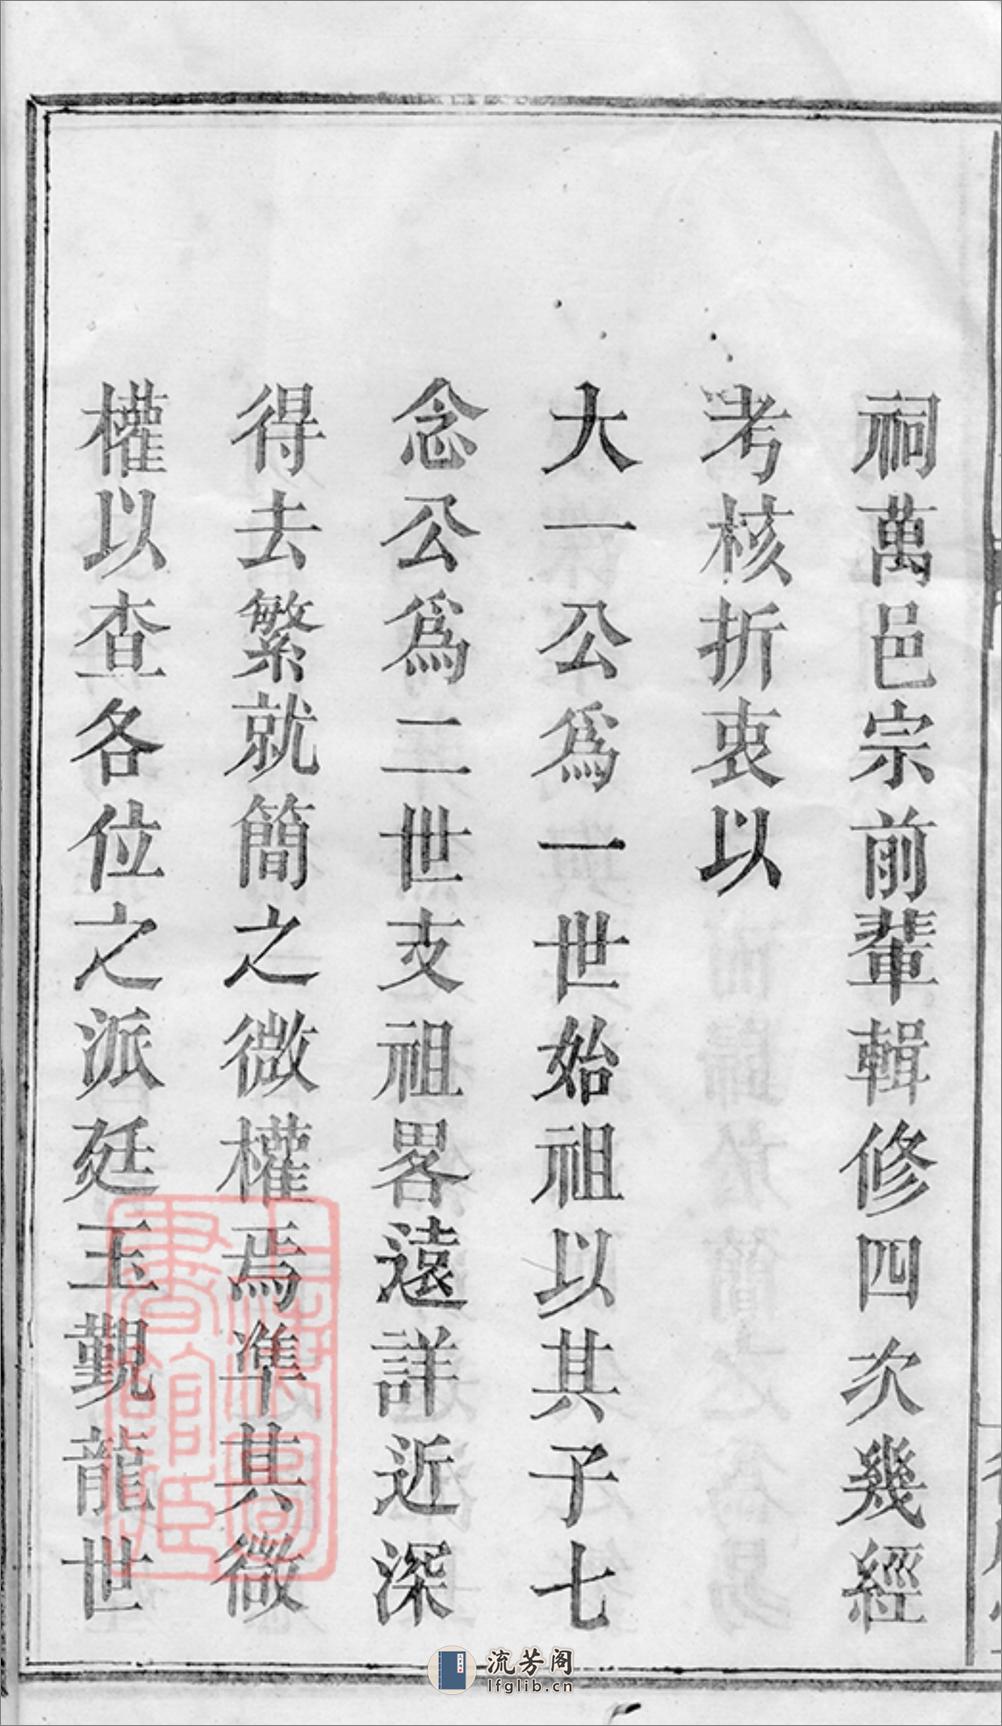 祠萬邑宗前輩輯修四次幾經
考核折衷以
大一公爲一世始祖以其子七
念公爲二世支祖畧遠詳近深
得去繁就簡之微權焉準其微
權以查各位之派廷玉覲龍世
上海圖
書館藏
流芳阁
lfglib.cn